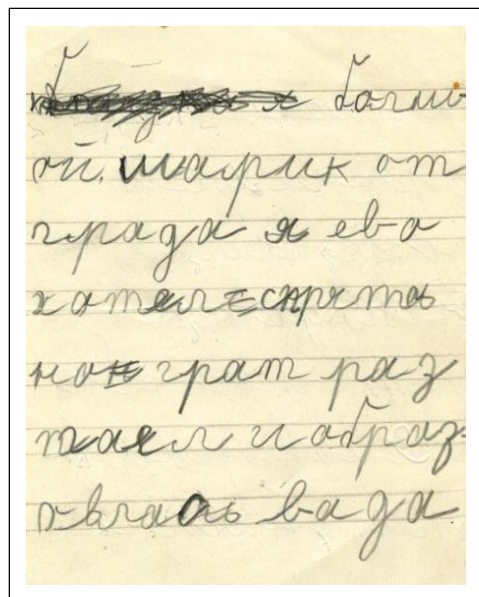 болш
ой шарик от
града я ево
хотел спрята
но грат раз
таел и образ-
овлась вада